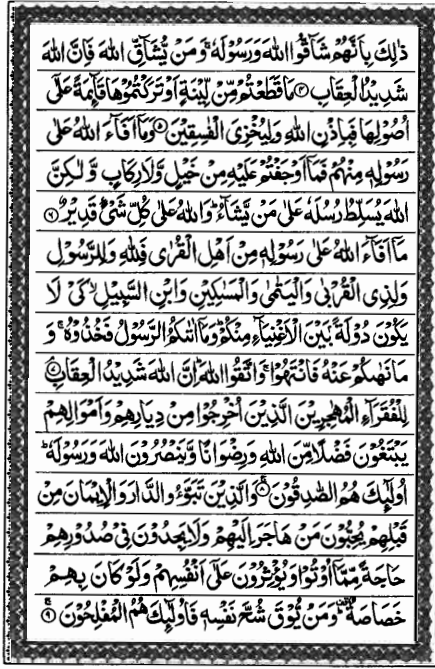 ذٰلِكَ بِاَنَّهُمْ شَآقُّوا اللّٰهَ وَرَسُوْلَهٗ ۚ وَمَنْ يُّشَآقِّ اللّٰهَ فَاِنَّ اللّٰهَ
شَدِيْدُ الْعِقَابِ ﴿۴﴾ مَا قَطَعْتُمْ مِّنْ لِّيْنَةٍ اَوْ تَرَكْتُمُوْهَا قَآئِمَةً عَلٰٓى
اُصُوْلِهَا فَبِاِذْنِ اللّٰهِ وَلِيُخْزِيَ الْفٰسِقِيْنَ ﴿۵﴾ وَمَآ اَفَآءَ اللّٰهُ عَلٰى
رَسُوْلِهٖ مِنْهُمْ فَمَآ اَوْجَفْتُمْ عَلَيْهِ مِنْ خَيْلٍ وَّلَا رِكَابٍ وَّلٰكِنَّ
اللّٰهَ يُسَلِّطُ رُسُلَهٗ عَلٰى مَنْ يَّشَآءُ ؕ وَاللّٰهُ عَلٰى كُلِّ شَيْءٍ قَدِيْرٌ ﴿۶﴾
مَآ اَفَآءَ اللّٰهُ عَلٰى رَسُوْلِهٖ مِنْ اَهْلِ الْقُرٰى فَلِلّٰهِ وَلِلرَّسُوْلِ
وَلِذِي الْقُرْبٰى وَالْيَتٰمٰى وَالْمَسٰكِيْنِ وَابْنِ السَّبِيْلِ ۙ كَيْ لَا
يَكُوْنَ دُوْلَةًۢ بَيْنَ الْاَغْنِيَآءِ مِنْكُمْ ؕ وَمَآ اٰتٰىكُمُ الرَّسُوْلُ فَخُذُوْهُ ۚ وَ
مَا نَهٰىكُمْ عَنْهُ فَانْتَهُوْا ۚ وَاتَّقُوا اللّٰهَ ؕ اِنَّ اللّٰهَ شَدِيْدُ الْعِقَابِ ﴿۷﴾
لِلْفُقَرَآءِ الْمُهٰجِرِيْنَ الَّذِيْنَ اُخْرِجُوْا مِنْ دِيَارِهِمْ وَاَمْوَالِهِمْ
يَبْتَغُوْنَ فَضْلًا مِّنَ اللّٰهِ وَرِضْوَانًا وَّيَنْصُرُوْنَ اللّٰهَ وَرَسُوْلَهٗ ؕ
اُولٰٓئِكَ هُمُ الصّٰدِقُوْنَ ﴿۸﴾ وَالَّذِيْنَ تَبَوَّؤُ الدَّارَ وَالْاِيْمَانَ مِنْ
قَبْلِهِمْ يُحِبُّوْنَ مَنْ هَاجَرَ اِلَيْهِمْ وَلَا يَجِدُوْنَ فِيْ صُدُوْرِهِمْ
حَاجَةً مِّمَّآ اُوْتُوْا وَيُؤْثِرُوْنَ عَلٰٓى اَنْفُسِهِمْ وَلَوْ كَانَ بِهِمْ
خَصَاصَةٌ ؕ وَمَنْ يُّوْقَ شُحَّ نَفْسِهٖ فَاُولٰٓئِكَ هُمُ الْمُفْلِحُوْنَ ﴿۹﴾